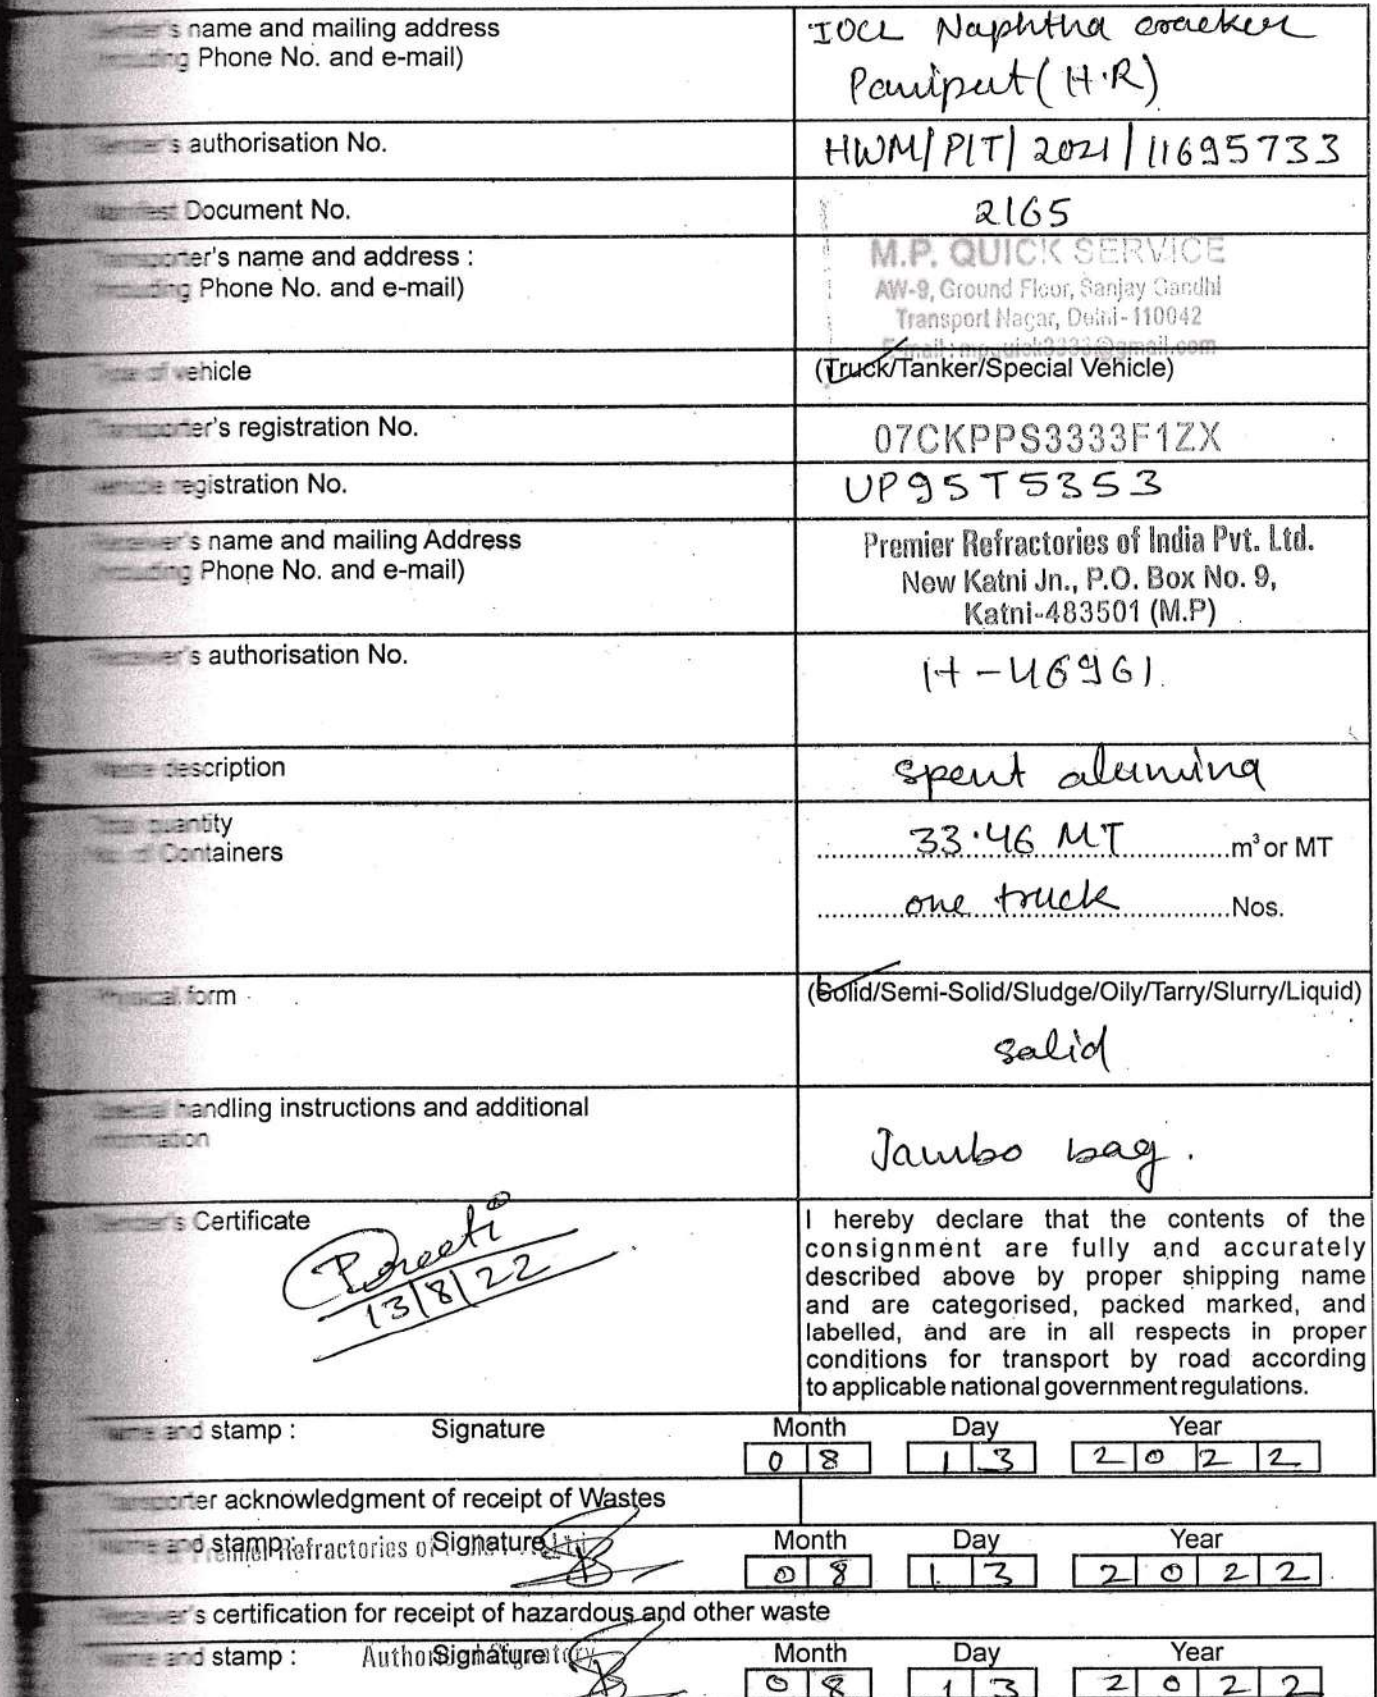 's name and mailing address
Phone No. and e-mail)
IOCL Naphtha cracker
Panipat (H.R)
's authorisation No.
HWM/PIT/2021/11695733
Document No.
2165
ter's name and address :
Phone No. and e-mail)
M.P. QUICK SERVICE
AW-9, Ground Floor, Sanjay Gandhi
Transport Nagar, Delhi-110042
vehicle
(Truck/Tanker/Special Vehicle)
ter's registration No.
07CKPPS3333F1ZX
registration No.
UP95T5353
's name and mailing Address
Phone No. and e-mail)
Premier Refractories of India Pvt. Ltd.
New Katni Jn., P.O. Box No. 9,
Katni-483501 (M.P)
's authorisation No.
H-46961.
description
spent alumina
quantity
Containers
33.46 MT m³ or MT
one truck Nos.
form
(Solid/Semi-Solid/Sludge/Oily/Tarry/Slurry/Liquid)
Solid
handling instructions and additional
Jambo bag.
's Certificate
Preeti
13/8/22
I hereby declare that the contents of the
consignment are fully and accurately
described above by proper shipping name
and are categorised, packed marked, and
labelled, and are in all respects in proper
conditions for transport by road according
to applicable national government regulations.
and stamp : Signature Month Day Year
08 13 2022
ter acknowledgment of receipt of Wastes
and stamp : Signature Month Day Year
Premier Refractories of
08 13 2022
's certification for receipt of hazardous and other waste
and stamp : Signature Month Day Year
Authorised Signatory
08 13 2022